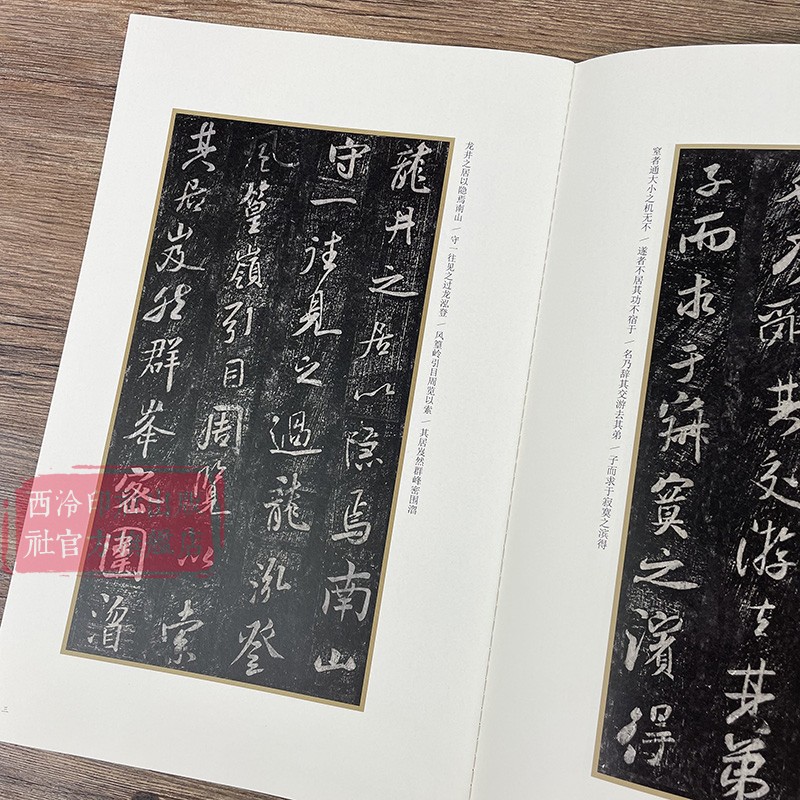 名乃辭其交游去其弟
子而求于寂寞之濱得
窒者通大小之机无不/遂者不居其功不宿于/名乃辞其交游去其弟/子而求于寂寞之滨得
龍井之居以隱焉南山
守一往見之過龍泓登
風篁嶺引目周覽以索
其居岌然群峯密圍溜
龙井之居以隐焉南山/守一往见之过龙泓登/风篁岭引目周览以索/其居岌然群峰密围溜
三
西泠印社出版
社官方